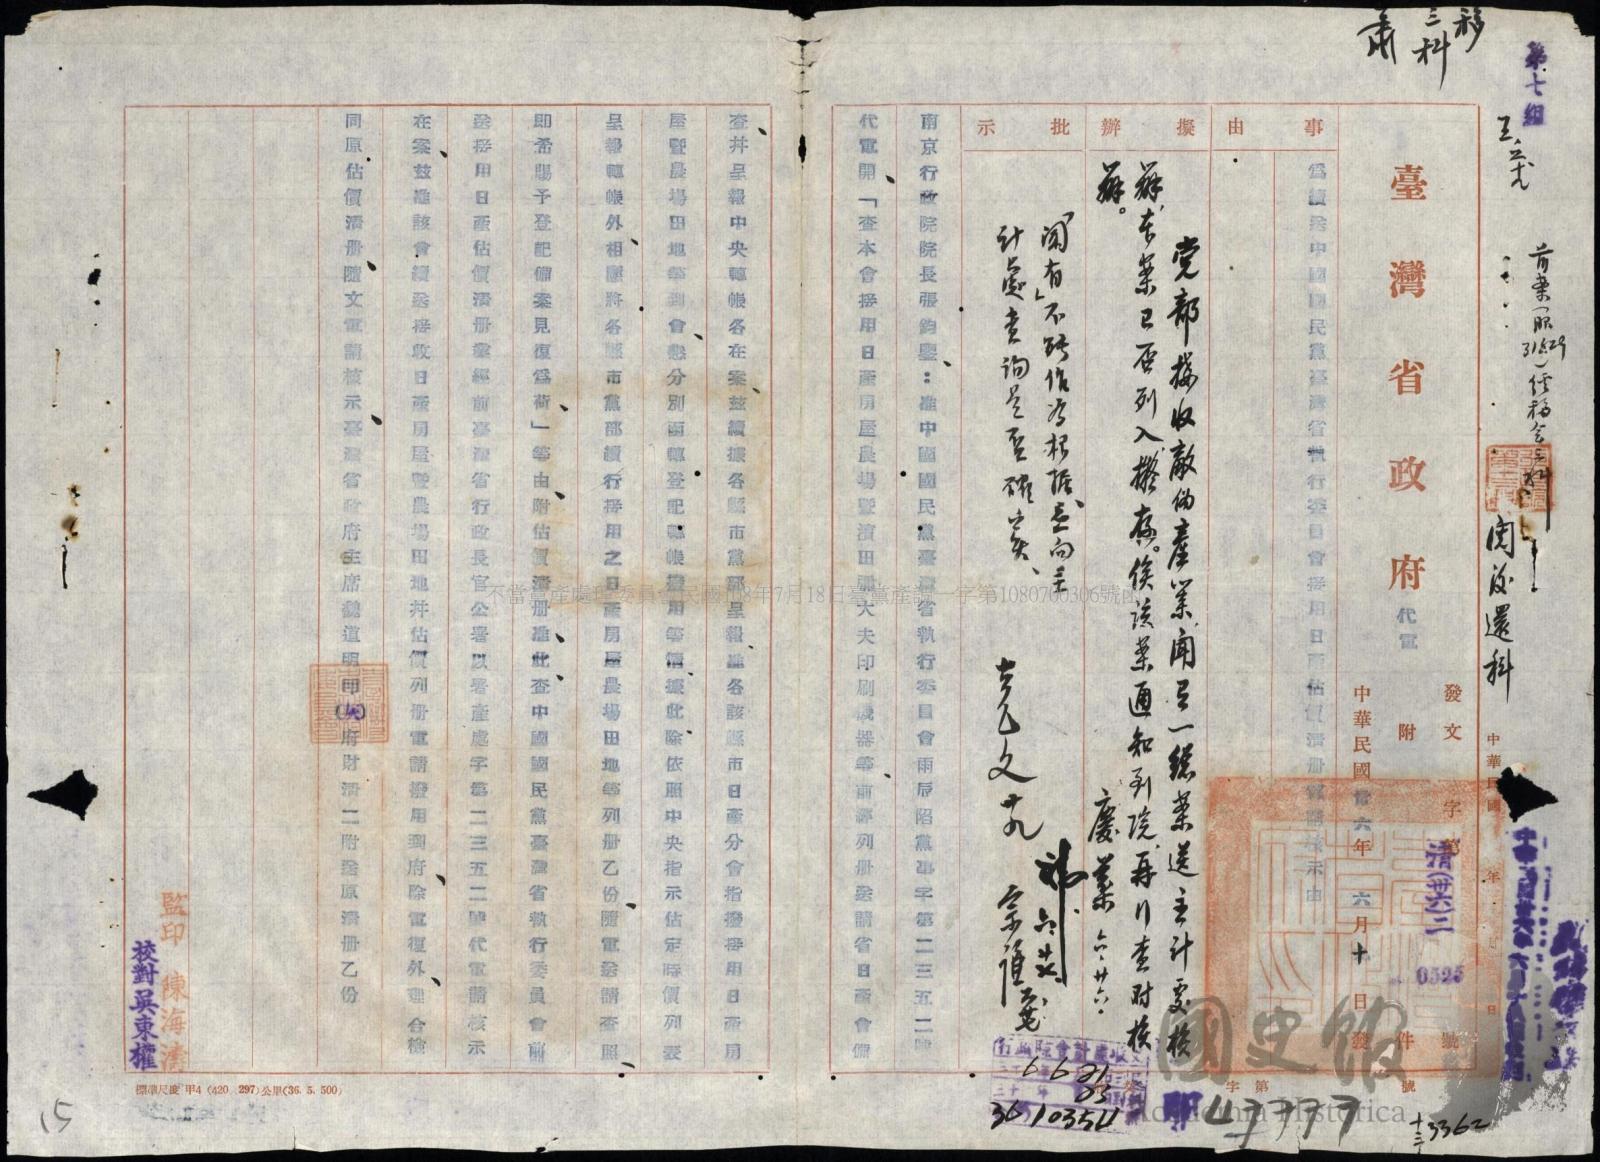 移
三科
肅
第七組
前案
經移會三科
閱後還科
臺灣省政府代電
發文 字第 號
附 件
清(卅六)二
0525
中華民國卅六年六月十日發
事由
擬辦
批示
為續送中國國民黨臺灣省執行委員會接用日產估價清册電請核示由
党部接收敵偽產業，聞另一總案送主計處核
辦，本案已否列入，擬存。俟該案通知到院，再行查對核
辦。
慶棻 六、廿六、
「聞有」不能作為根據，應向主
計處查詢是否確實、
南京行政院院長張鈞鑒：准中國國民黨臺灣省執行委員會雨辰陷黨事字第二三五二號
代電開、「查本會接用日產房屋農場暨濱田彌大夫印刷機器等、前經列册送請省日產會備
查并呈報中央轉帳各在案、茲續據各縣市黨部呈報、准各該縣市日產分會指撥接用日產房
屋暨農場田地等到會、懇分別函轉登記轉帳撥用等情、據此、除依照中央指示估定時價列表
呈報轉帳外、相應將各縣市黨部續行接用之日產房屋農場田地等列册乙份、隨電送請查照、
即希賜予登記備案見復為荷、」等由、附估價清册、准此、查中國國民黨臺灣省執行委員會前
送接用日產估價清册業經前臺灣省行政長官公署以署產處字第二三五二號代電請核示
在案、茲准該會續送接收日產房屋暨農場田地并估價列册、電請撥用到府、除電復外、理合檢
同原估價清册、隨文電請核示、臺灣省政府主席魏道明甲(火)府財清二附送原清册乙份
監印 陳海清
校對吳東權
標準尺度 甲4 (420 297)公里(36. 5. 500)
不當黨產處理委員會民國108年7月18日臺黨產調一字第1080700306號函
國史館
Academia Historica
字第 號
47777
6 6 21
36 10354
十三 3362
15